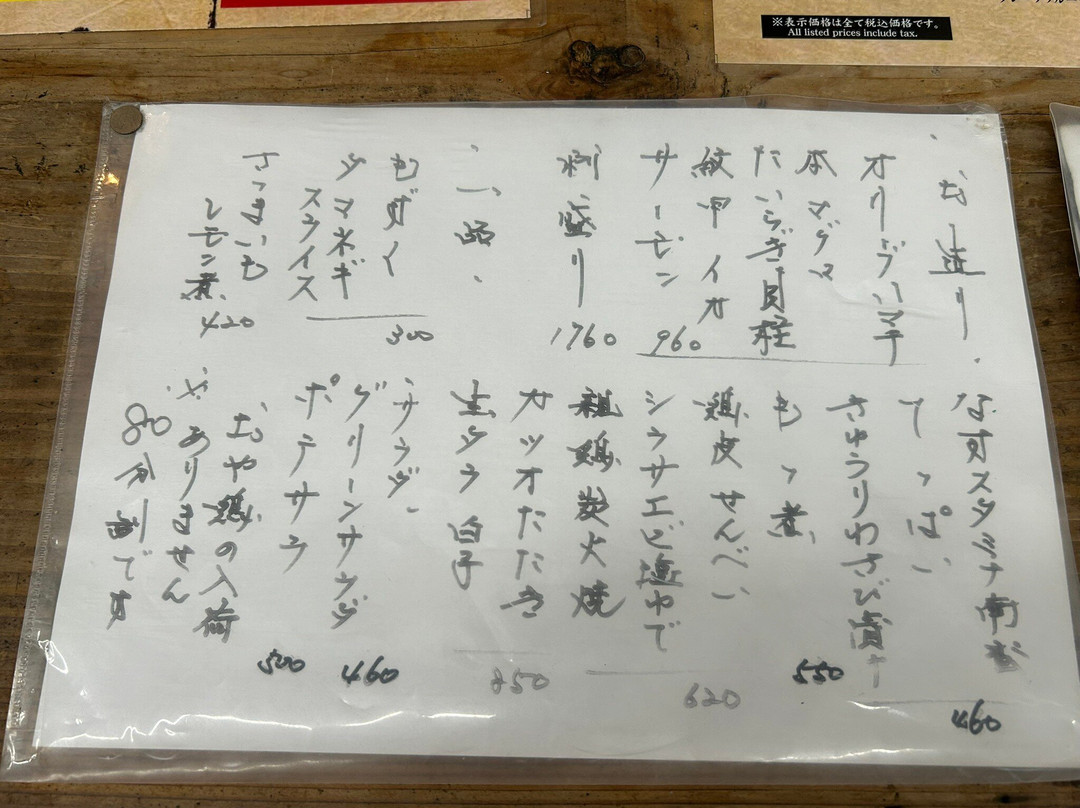 ※表示価格は全て税込価格です。
All listed prices include tax.
、お造り、
オリーブハマチ
本マグロ
たいらぎ貝柱
紋甲イカ
サーモン
960
刺盛り
1760
、一品、
もずく
タマネギ
スライス
300
さつまいも
レモン煮
420
なすスタミナ南蛮
てっぱい
きゅうりわさび漬け
460
もつ煮
550
鶏皮せんべい
シラサエビ塩ゆで
620
親鶏炭火焼
カツオたたき
生タラ白子
850
、サラダ、
グリーンサラダ
460
ポテサラ
500
おや鶏の入荷
※ありません
80分制です